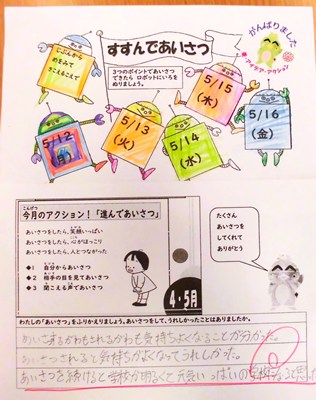 すすんであいさつ
がんばりました
アイデア・アクション
じぶんから
めをみて
きこえるこえで
3つのポイントであいさつ
できたら ロボットにいろを
ぬりましょう。
5/12
(月)
5/13
(火)
5/14
(水)
5/15
(木)
5/16
(金)
こんげつ
今月のアクション！「進んであいさつ」
あいさつをしたら、笑顔いっぱい
あいさつをしたら、心がほっこり
あいさつをしたら、人とつながった
◆1 自分からあいさつ
◆2 相手の目を見てあいさつ
◆3 聞こえる声であいさつ
4・5月
たくさん
あいさつを
してくれて
ありがとう
わたしの「あいさつ」をふりかえりましょう。あいさつをして、うれしかったことはありましたか。
あいさつするがわもされるがわも気持ちよくなることが分かった。
あいさつされると気持ちがよくなってうれしかった。
あいさつを続けると学校が明るくて元気いっぱいの学校になると思った